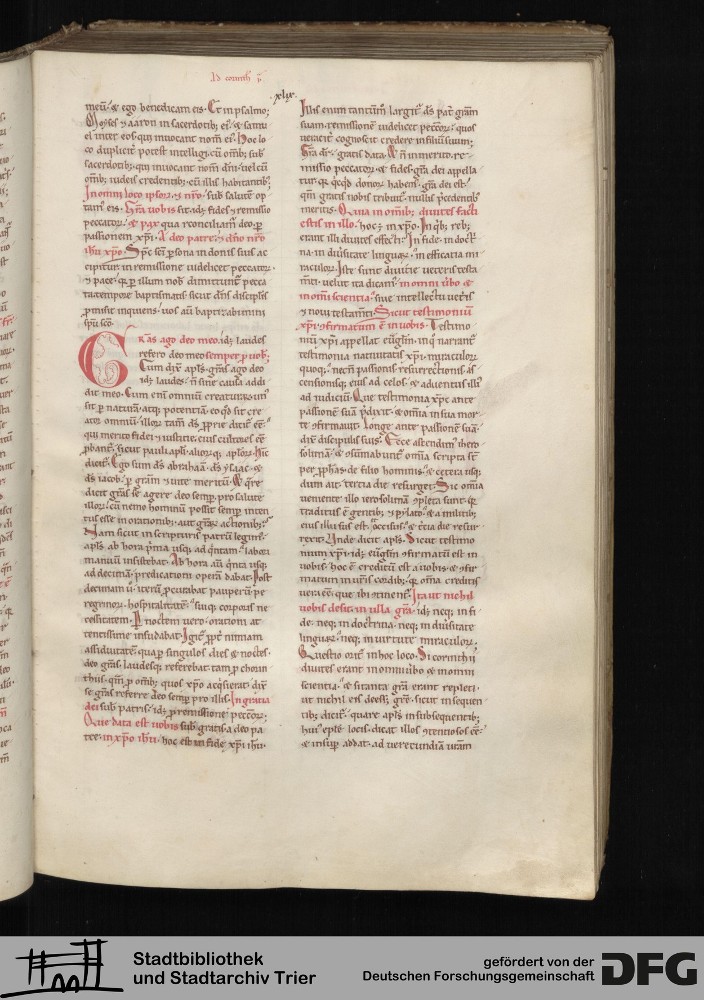 Ad corinth
.xlix.
meū. & ego benedicam eis. Et in psalmo;
Moyses & aaron in sacerdotib; ei. & samu
el inter eos qui inuocant nom̄ ei. Hoc lo
co duplicit̄ potest intelligi. cū om̄ib; sub
sacerdotib; qui inuocant nom̄ dn̄i. uel cū
om̄ib; iudeis credentib; cū illis habitantib;
In om̄i loco ipsoꝝ & nr̄o. sub salute op
tam eis. Gr̄a uobis sit. id; fides & remissio
peccatoꝝ. & pax qua reconciliam̄ deo ꝑ
passionem xp̄i. A deo patre; & dn̄o nr̄o
ihū xp̄o. Sp̄c sc̄i ꝑsona in donis suis ac
cipitur. in remissione uidelicet peccatoꝝ.
& pace. ꝑ illum nob dimittunt̄ pecca
ta tempore baptismatis. sicut dn̄s disciplis
ꝓmisit inquiens; uos aū baptizabimini
spū sc̄o.
Gras ago deo meo. id; laudes
refero deo meo semper ꝓ uob;
Cum dix̄ apl̄s. gr̄as ago deo
id; laudes. n̄ sine causa addi
dit meo. Cum eni omniū creaturaꝝ un
sit ꝑ naturā. atq; potentiā. eo qd sit cre
ator omniū. illoꝝ tam̄ ds̄ ꝓprie dicit̄ ee
qui merito fidei & iusticie. eius cultores ee
ꝓbant̄. sicut pauli apl̄i. alioꝝq; apl̄oꝝ. Hic
dicit̄. Ego sum ds̄ abrahaā. ds̄ ysaac. &
ds̄ iacob. ꝑ gram & uite meritū.
dicit gr̄as se agere deo semꝑ. pro salute
illoꝝ. cū nemo hominū possit semꝑ inten
tus esse in orationib;. aut gr̄aꝝ actionib;.
Nam sicut in scripturis patrū legim̄.
apl̄s ab hora p̄ma usq; ad qintam. labori
manuū insistebat. Ab hora aū quinta usq;
ad decimā. predicationi operā dabat. Post
decimam ū iterū ꝓcurabat pauperū. pe
regrinoꝝ. hospitalitatē. suiq; corporis ne
cessitatem. Per noctem uero. orationi at
tentissime insudabat. Igit̄ ꝓpt̄ nimiam
assiduitatē. qua ꝑ singulos dies & noctes
deo gr̄as laudesq; referebat. tam ꝓ chorin
thiis. qm̄ ꝓ om̄ib; quos xp̄o acqsierat. dix̄
se gr̄as referre deo semꝑ pro illis. In gratia
dei sub patris. id; ꝓ remissione peccoꝝ.
Que data est uobis sub gratis a deo pa
tre. in xp̄o ihū. hoc est in fide xp̄i ihū.
Illis enim tantum largit̄ ds̄ pat̄ gram
suam. remissionē uidelicet peccoꝝ. quos
ueracit̄ cognoscit credere in filiū suum.
Gr̄a dr̄. gratis data. & n̄ inmerito re
missio peccatoꝝ & fides gr̄a dei appella
tur. qa qcqd donoꝝ habem̄. gr̄a dei est.
qm̄ gratis nobis tribuit. nullis p̄cedentib;
meritis. Quia in om̄ib; diuites facti
estis in illo. hoc; in xp̄o. In qb; reb;
erant illi diuites effecti. In fide. in doct
na. in diūsitate linguaꝝ. in efficatia mi
raculoꝝ. Iste sunt diuitie ueteris testa
mti. uelut ita dicam. in omni ūbo &
in om̄i scientia. siue intellectu uet̄is
& noui testam̄ti. Sicut testimoniū
xp̄i ꝯfirmatum ē in uobis. Testimo
niū xp̄i appellat̄ euglm̄. in q narrant̄
testimonia natiuitatis xp̄i. miraculoꝝ
quoq;. necn̄ passionis. resurrectionis. as
censionisq; eius ad celos. & aduentus illi
ad iudiciū. Que testimonia xp̄c ante
passionē suā p̄dixit. & omīa in sua mor
te ꝯfirmauit. Longe ante passionē suā.
dix̄ discipulis suis. Ecce ascendim̄ ihero
solimā. & ꝯsūmabunt̄ omīa scripta sc̄
per ꝓphas de filio hominis. & cetera usq;
dum ait. tercia die resurget. Sic omīa
ueniente illo ierosolimā ꝯpleta sunt. qa
traditus ē gentib; & pylato. & a militib;
eius illusus est. occisus. & tcia die resur
rexit. Unde dicit apl̄s. Sicut testimo
nium xp̄i. id; euglm̄ ꝯfirmatū est in
uobis. hoc ē creditū est a uobis. & ꝯfir
matum in ūris cordib;. qa omīa creditis
uera eē. que ibi ꝯtinent̄. Ita ut nichil
uobis desit in ulla gr̄a. id; neq; in fi
de. neq; in doctrina. neq; in diūsitate
linguaꝝ. neq; in uirtute miraculoꝝ.
Questio orit̄ in hoc loco. Si corinthii
diuites erant in omni ūbo & in omni
scientia. & si tanta gr̄a erant repleti.
ut nichil eis deess; gr̄e. sicut in sequen
tib; dicit̄. quare apl̄s in subsequentib;
hui eple locis. dicat illos ꝯtentiosos eē.
& insup addat. ad uerecundiā uram
Stadtbibliothek
und Stadtarchiv Trier
gefördert von der
Deutschen Forschungsgemeinschaft
DFG